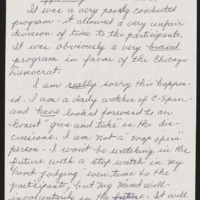 It was a very poorly conducted
program - it allowed a very unfair
division of time to the participants.
It was obviously a very biased
program in favor of the Chicago
Democrat.
I am really sorry this happen-
ed. I am a daily watcher of C-Span -
and have looked forward to an
honest "give and take" in the dis-
cussions. I am not a "soap opera"
person. I won't be watching in the
future with a stop watch in my
hand judging even time to the
participants, but my mind will
in the future. It will